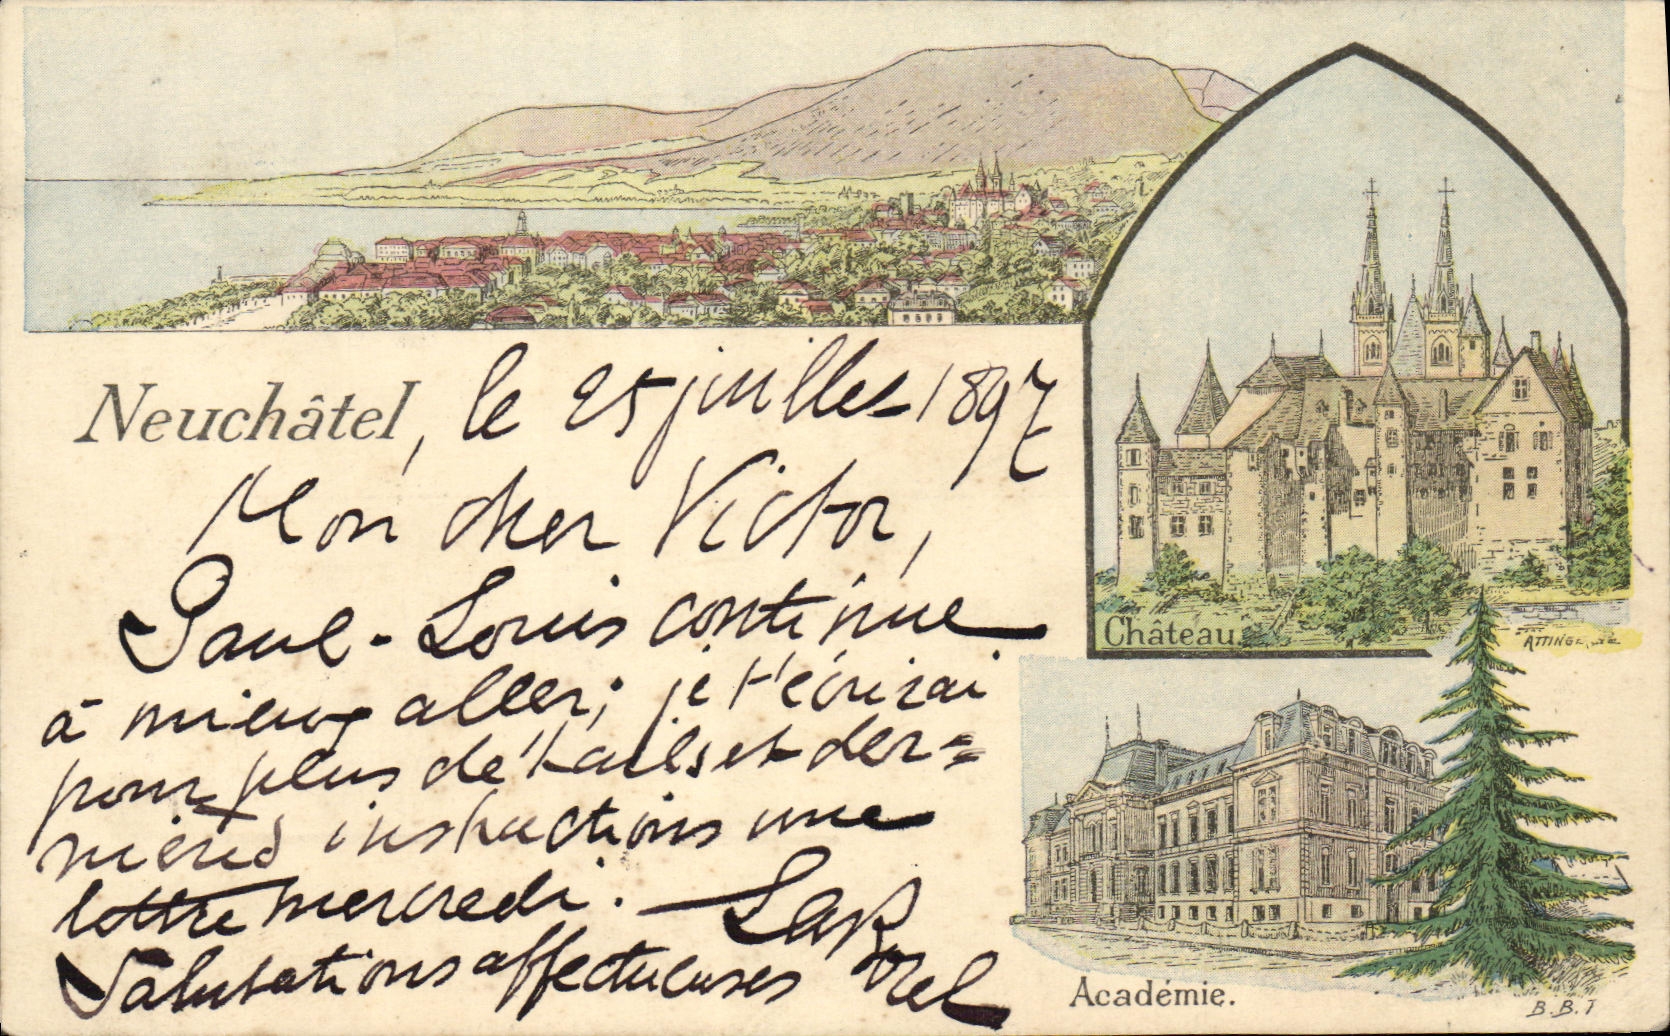 Neuchâtel, le 25 juillet 1897
Mon cher Victor,
Paul-Louis continue
à mieux aller; je t'écrirai
pour plus de détails et der=
nières instructions une
lettre mercredi.
Salutations affectueuses
Château
ATTINGER
Académie.
B.B.I